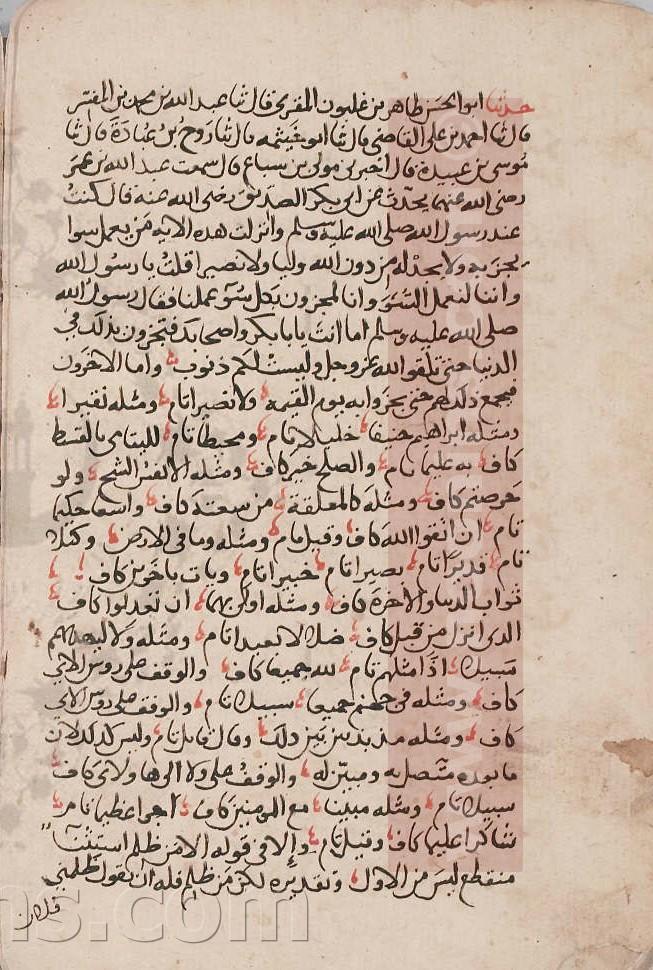 حدثنا ابو الحسن طاهر بن غلبون المقري قال ثنا عبد الله بن محمد بن المفسر
قال ثنا احمد بن علي القاضي قال ثنا ابو خيثمه قال ثنا روح بن عبادة قال ثنا
موسى بن عبيدة قال اخبرني مولى بن سباع قال سمعت عبد الله بن عمر
رضى الله عنهما يحدث عن ابي بكر الصديق رضى الله عنه قال كنت
عند رسول الله صلى الله عليه وسلم وانزلت هذه الايه من يعمل سوا
يجز به ولا يجد له من دون الله وليا ولا نصيرا قلت يا رسول الله
واننا لنعمل السوء وانا لمجزون بكل سوء عملنا فقال رسول الله
صلى الله عليه وسلم اما انت يابا بكر واصحابك فتجزون بذلك في
الدنيا حتى تلقوا الله عز وجل وليست لكم ذنوب واما الاخرون
فيجمع ذلك لهم حتى يجزوا به يوم القيمة ولا نصيرا تام ومثله نقيرا
ومثله ابراهيم حنيفا خليلا تام ومحيطا تام لليتامى بالقسط
كاف به عليما تام والصلح خير كاف ومثله الانفس الشح ولو
حرصتم كاف ومثله كالمعلقة من سعته كاف واسعا حكيما
تام ان اتقوا الله كاف وقيل تام ومثله وما في الارض وكيلا
تام قديرا تام بصيرا تام خبيرا تام ويات باخرين كاف
ثواب الدنيا والاخرة كاف ومثله اولى بهما ان تعدلوا كاف
الذي انزل من قبل كاف ضلالا بعيدا تام ومثله ولا ليهديهم
سبيلا اذا مثلهم تام لله جميعا كاف والوقف على روس الاي
كاف ومثله في جهنم جميعا سبيلا تام والوقف على روس الاي
كاف ومثله مذبذبين بين ذلك وقال قائل تام وليس كذلك لان
ما بعده متصل به ومبين له والوقف على ولا الى هاولاى كاف
سبيلا تام ومثله مبينا مع المومنين كاف اجرا عظيما تام
شاكرا عليما كاف وقيل تام والا في قوله الا من ظلم استثنآ
منقطع ليس من الاول وتقديره لكن من ظلم فله ان يقول ظلمني
فلان
ns.com